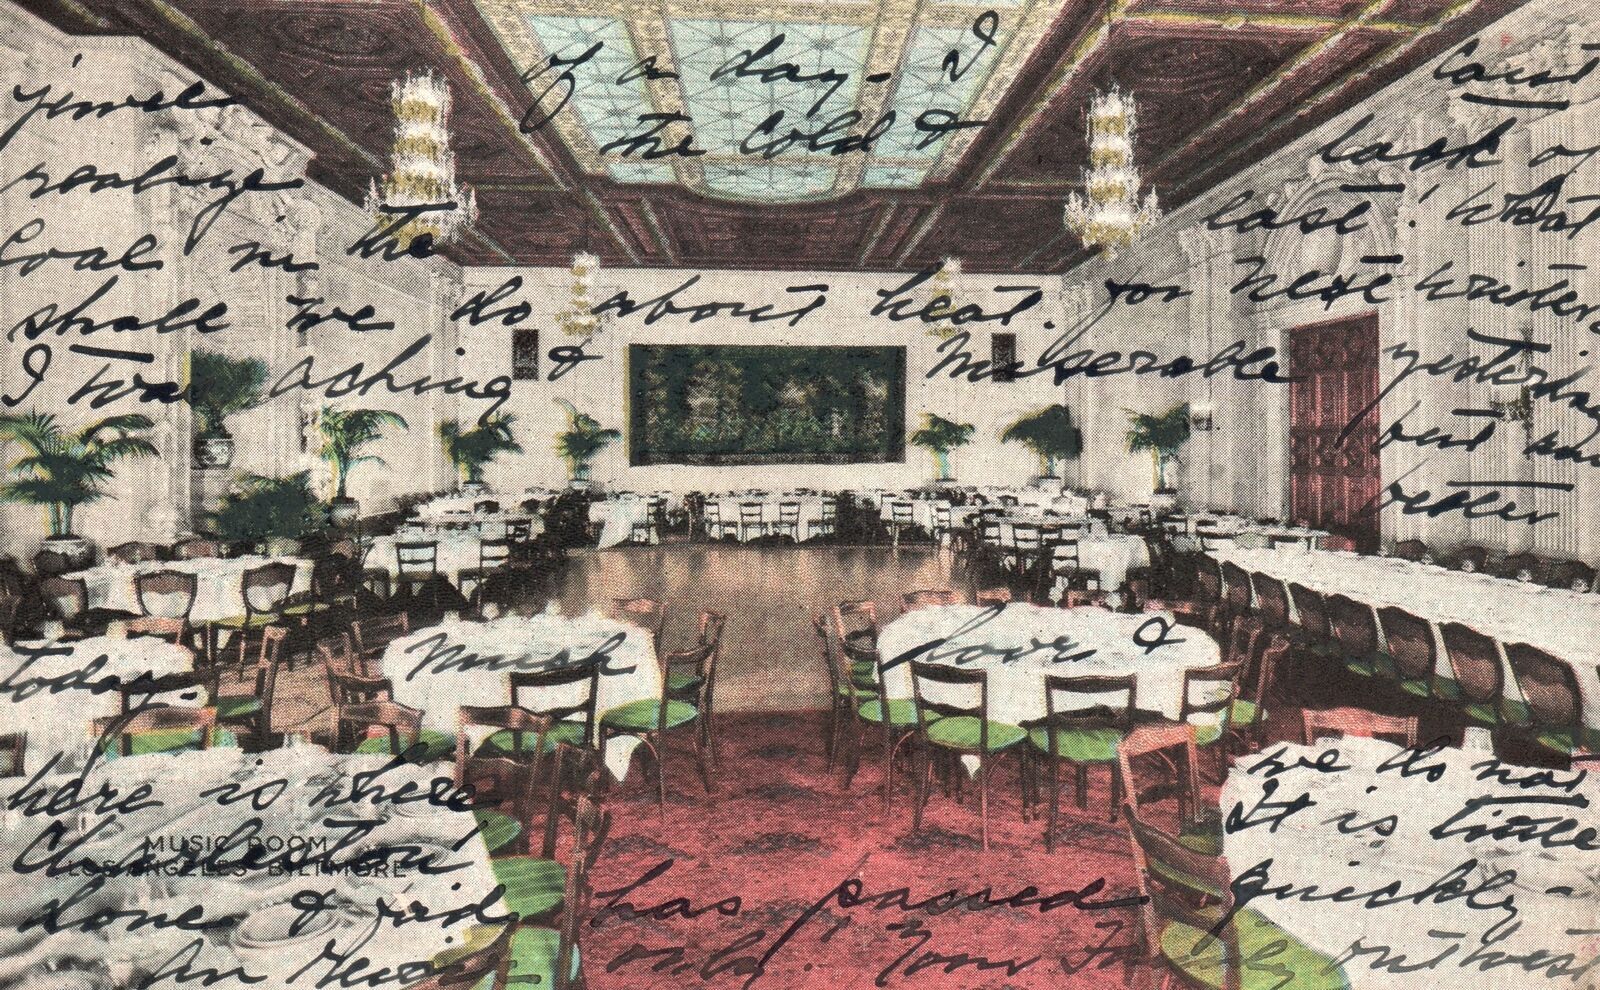 jewel of a day - I can't
realize the Cold & lack of
Coal in the east! What
shall we do about heat for next winter
I was aching & miserable yesterday
but
better
today. Much love &
here is where we do not
Charleston It is time
MUSIC ROOM
LOS ANGELES BILTMORE
done & has passed quickly -
only. Your Family out west